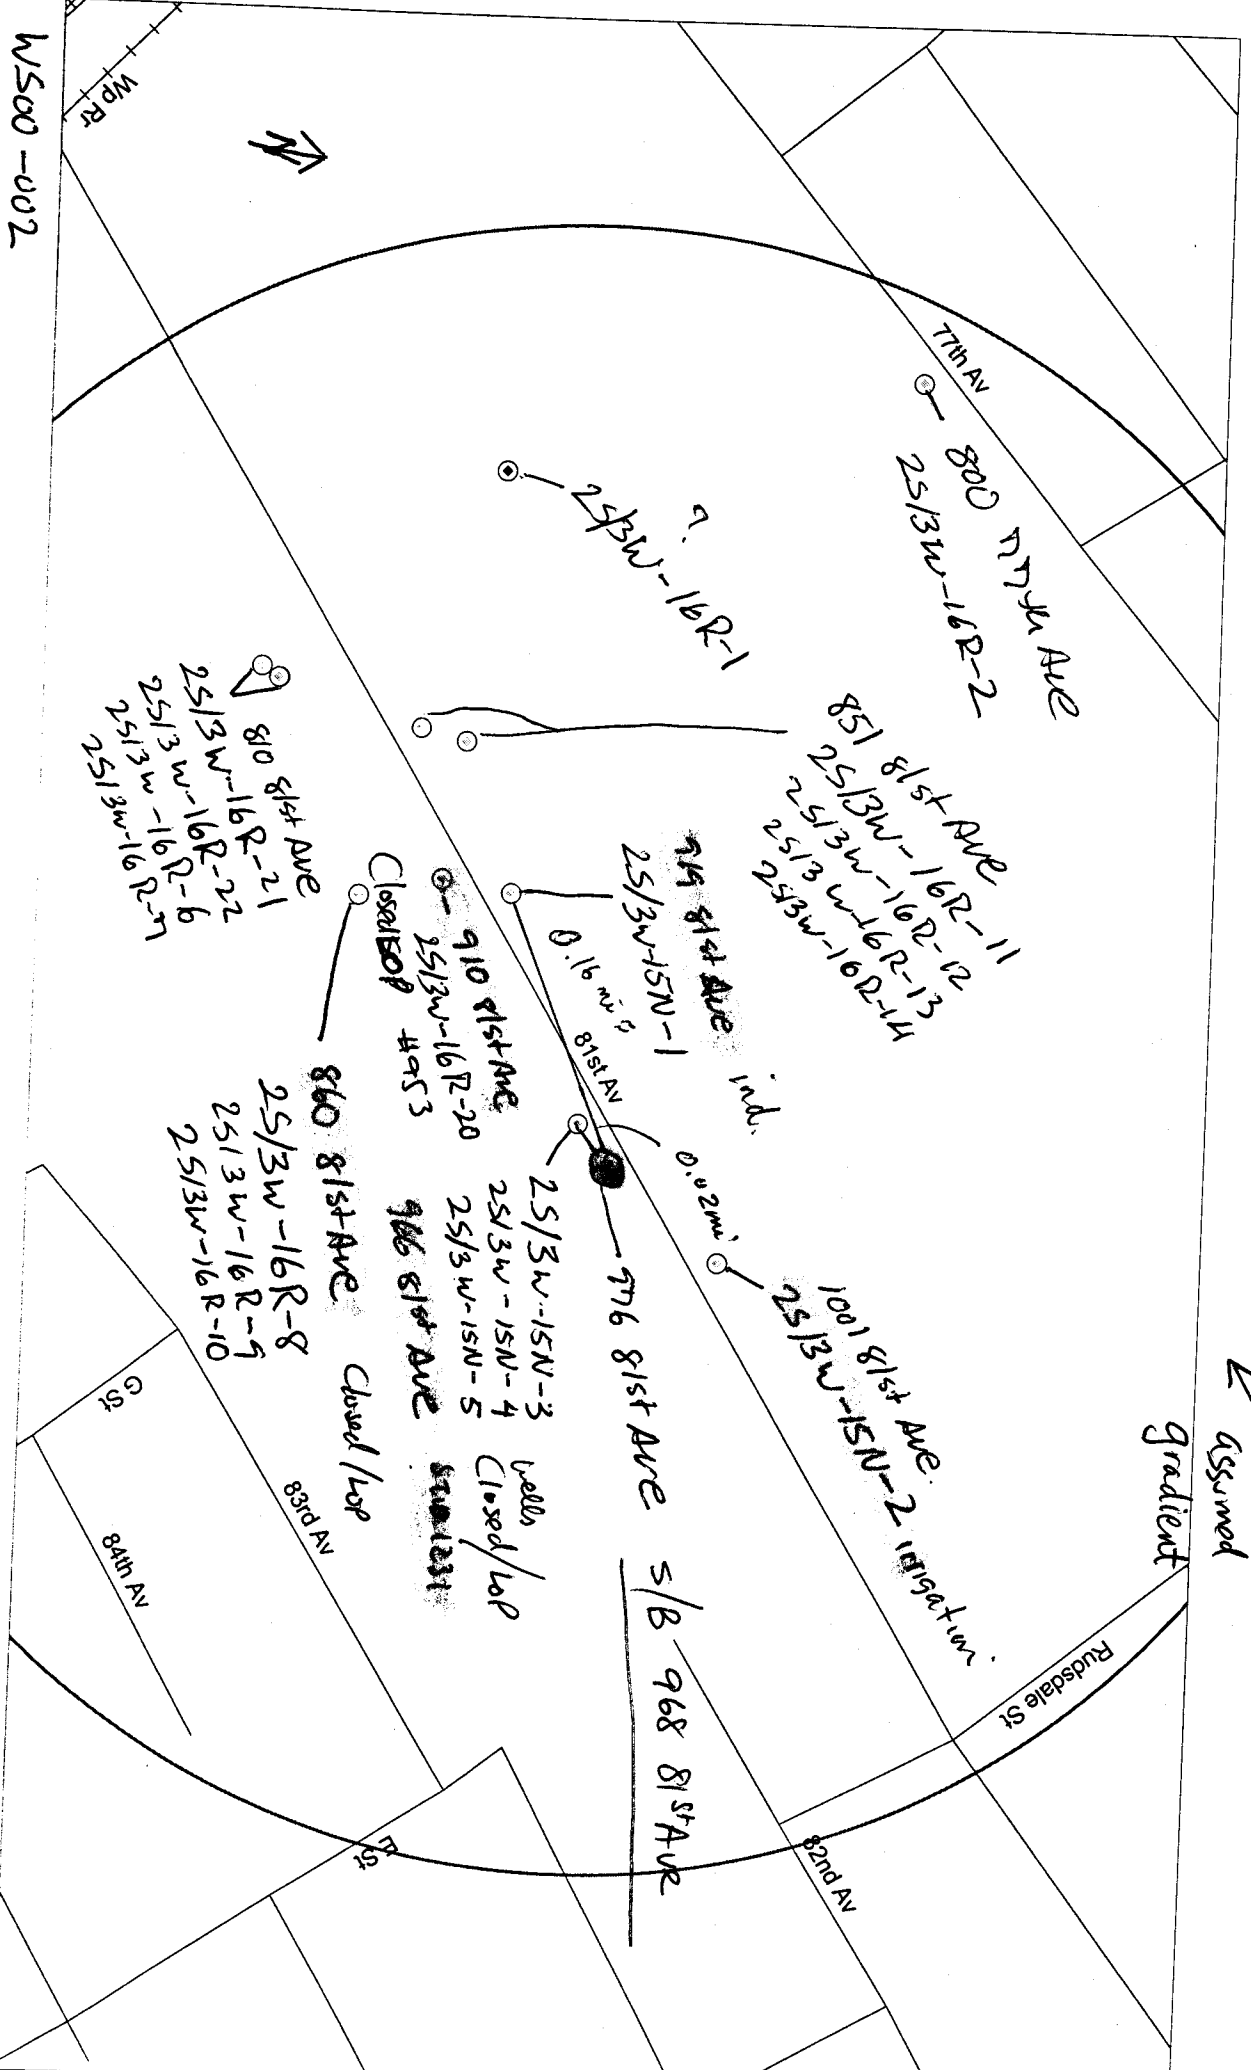 WS00-002
Wp Rr
77th Av
800 77th Ave
2S/3W-16R-2
?
2S/3W-16R-1
851 81st Ave
2S/3W-16R-11
2S/3W-16R-12
2S/3W-16R-13
2S/3W-16R-14
810 81st Ave
2S/3W-16R-21
2S/3W-16R-22
2S/3W-16R-6
2S/3W-16R-7
919 81st Ave ind.
2S/3W-15N-1
0.16 mi
81st Av
910 81st Ave
2S/3W-16R-20
Closed #953
860 81st Ave Closed/LOP
2S/3W-16R-8
2S/3W-16R-9
2S/3W-16R-10
0.02mi
2S/3W-15N-3
2S/3W-15N-4
2S/3W-15N-5
966 81st Ave
wells
Closed/LOP
976 81st Ave S/B 968 81st Ave
1001 81st Ave.
2S/3W-15N-2 irrigation.
assumed
gradient
Rudsdale St
82nd Av
83rd Av
84th Av
G St